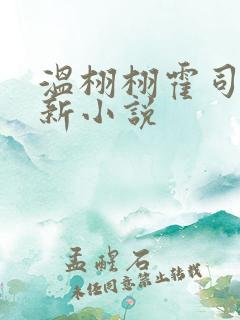 温栩栩霍司
新小说
孟醒石
未经同意禁止转载